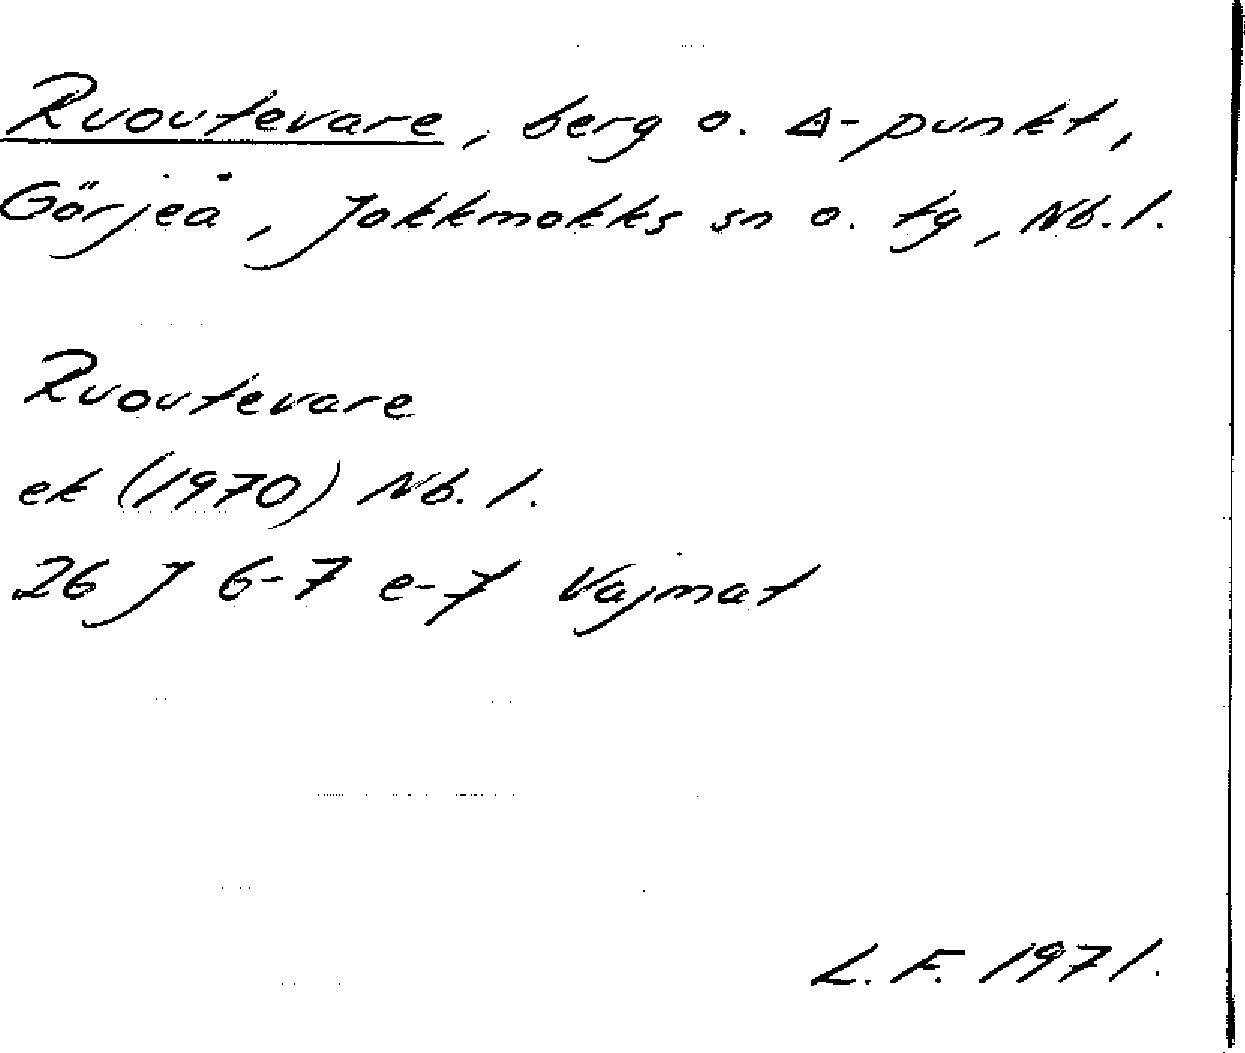 Ruoutevare, berg o. Δ-punkt,
Görjeå, Jokkmokks sn o. tg, Nb. l.
Ruoutevare
ek (1970) Nb. l.
26 J 6-7 e-f Vajmat
L. F. 1971.